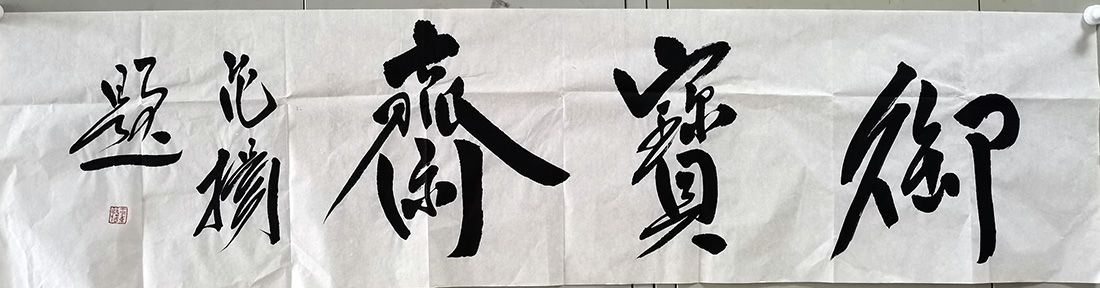 御寶齋
范揚
題